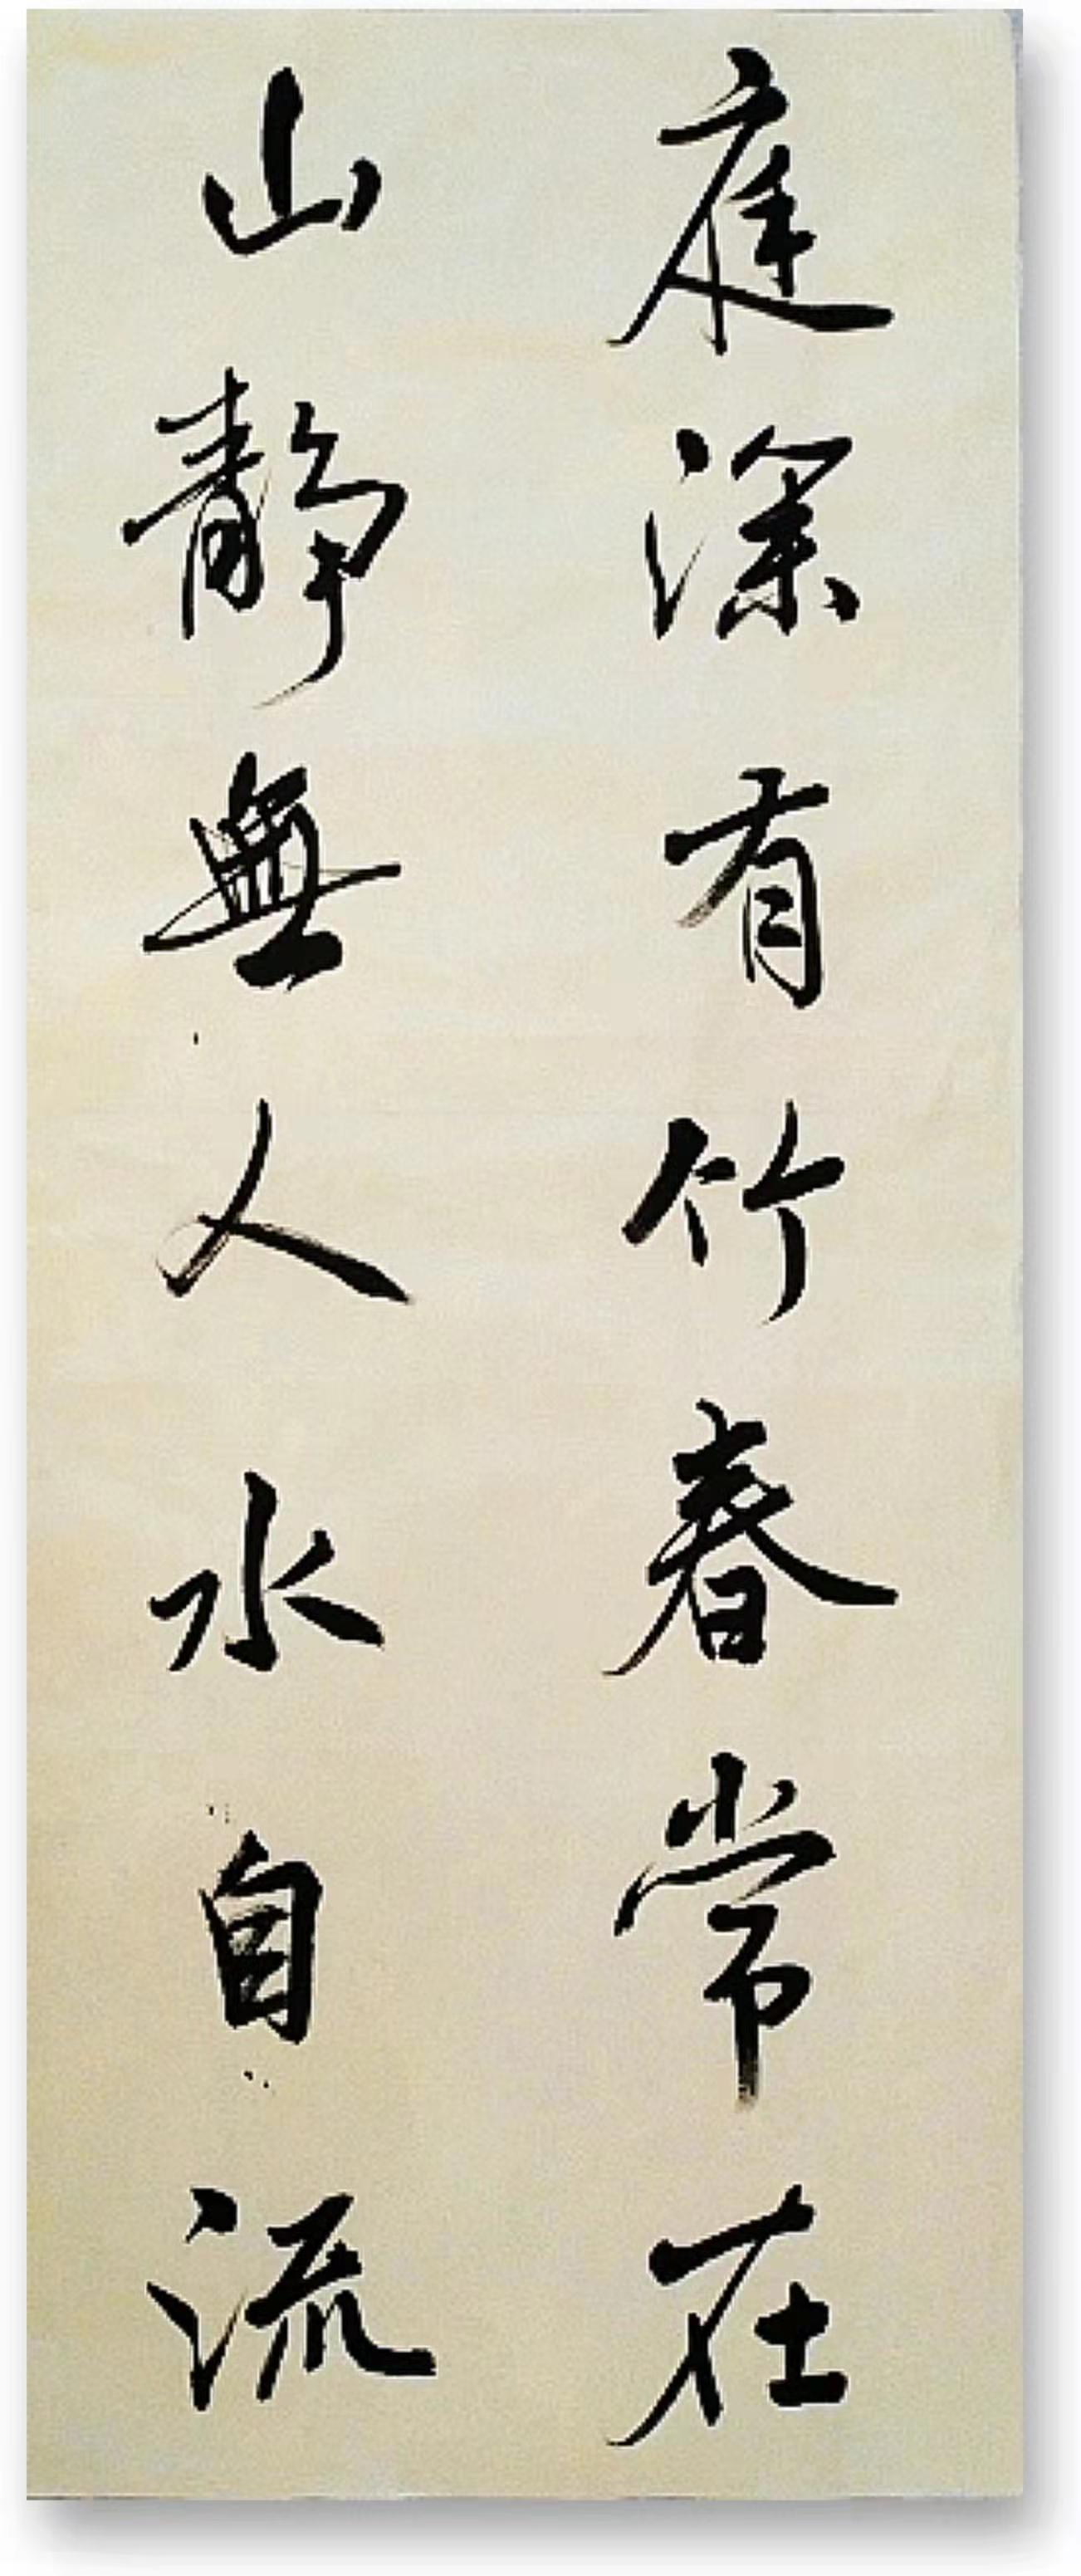 庭深有竹春常在
山靜無人水自流